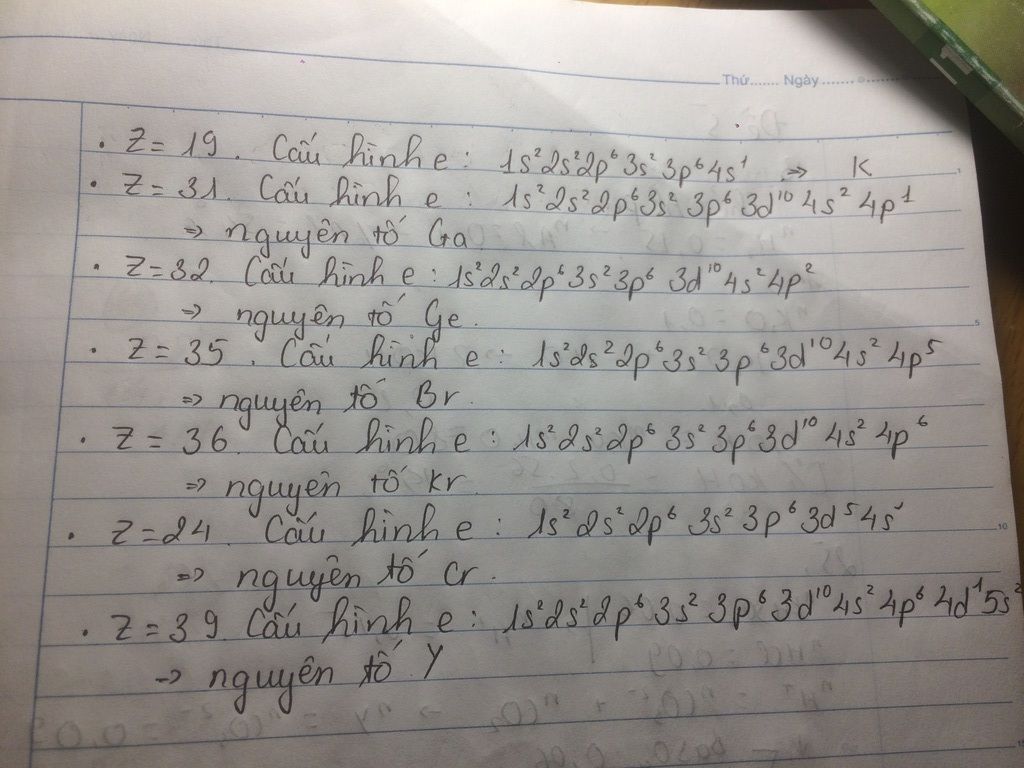 Thứ....... Ngày...........
. Z = 19. Cấu hình e: 1s² 2s² 2p⁶ 3s² 3p⁶ 4s¹ => K
. Z = 31. Cấu hình e: 1s² 2s² 2p⁶ 3s² 3p⁶ 3d¹⁰ 4s² 4p¹
=> nguyên tố Ga
. Z = 32. Cấu hình e: 1s² 2s² 2p⁶ 3s² 3p⁶ 3d¹⁰ 4s² 4p²
=> nguyên tố Ge.
. Z = 35. Cấu hình e: 1s² 2s² 2p⁶ 3s² 3p⁶ 3d¹⁰ 4s² 4p⁵
=> nguyên tố Br.
. Z = 36. Cấu hình e: 1s² 2s² 2p⁶ 3s² 3p⁶ 3d¹⁰ 4s² 4p⁶
=> nguyên tố Kr.
. Z = 24. Cấu hình e: 1s² 2s² 2p⁶ 3s² 3p⁶ 3d⁵ 4s¹
=> nguyên tố Cr.
. Z = 39 Cấu hình e: 1s² 2s² 2p⁶ 3s² 3p⁶ 3d¹⁰ 4s² 4p⁶ 4d¹ 5s²
-> nguyên tố Y